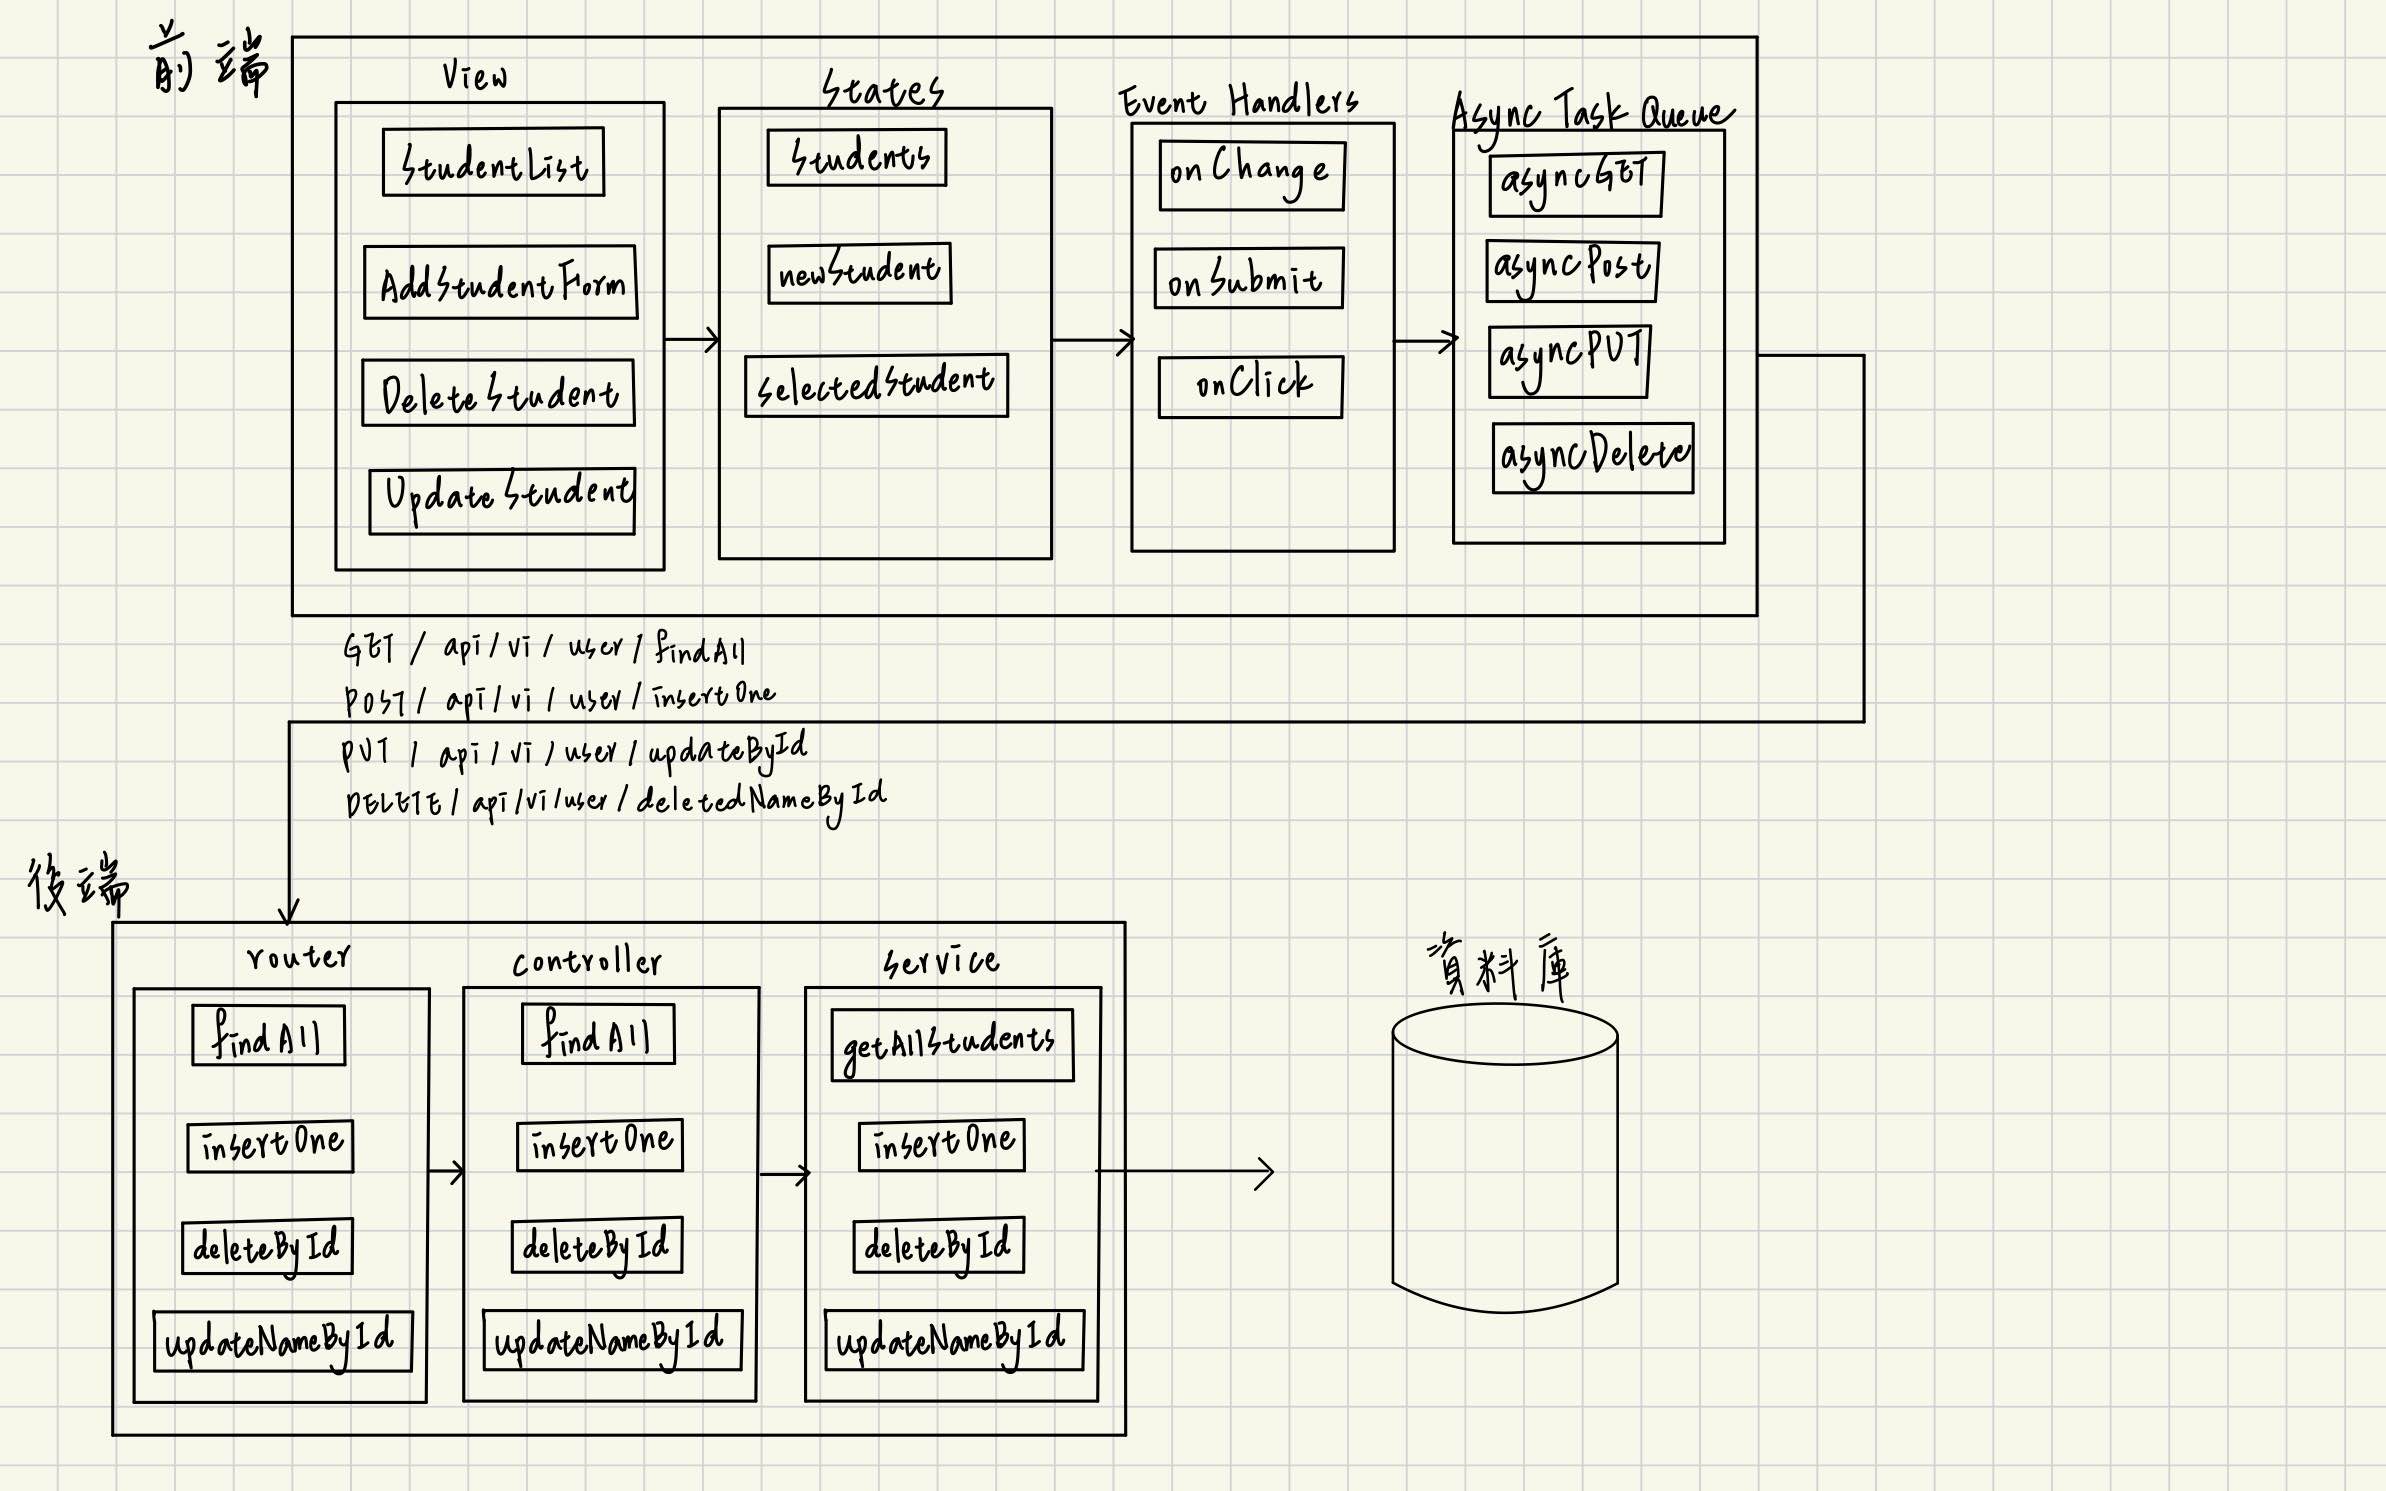 前端
View
StudentList
AddStudentForm
DeleteStudent
UpdateStudent
States
Students
newStudent
selectedStudent
Event Handlers
onChange
onSubmit
onClick
Async Task Queue
asyncGET
asyncPost
asyncPUT
asyncDelete
GET / api / v1 / user / findAll
POST / api / v1 / user / insertOne
PUT / api / v1 / user / updateById
DELETE / api / v1 / user / deletedNameById
後端
router
findAll
insertOne
deleteById
updateNameById
controller
findAll
insertOne
deleteById
updateNameById
service
getAllStudents
insertOne
deleteById
updateNameById
資料庫